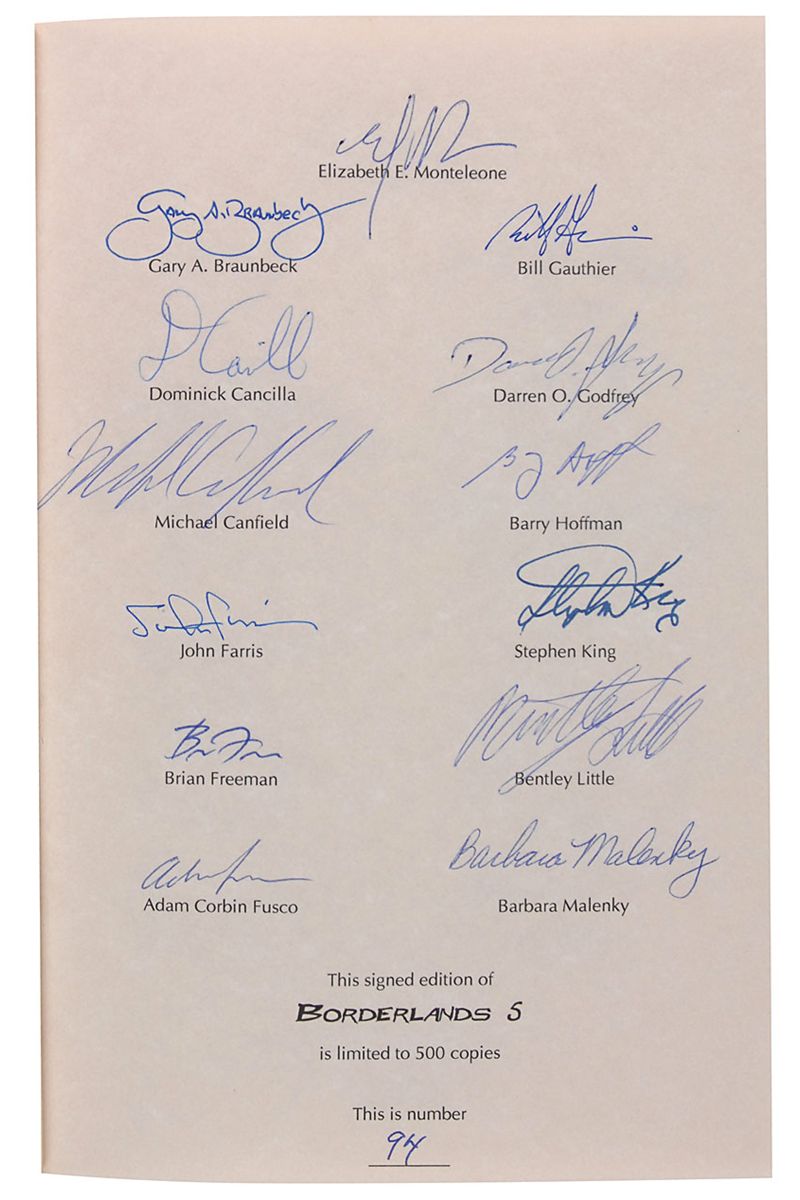 Elizabeth E. Monteleone
Gary A. Braunbeck
Gary A. Braunbeck
Bill Gauthier
Dominick Cancilla
Darren O. Godfrey
Michael Canfield
Barry Hoffman
John Farris
Stephen King
Stephen King
John Farris
Brian Freeman
Bentley Little
Bentley Little
Barbara Malenky
Adam Corbin Fusco
Barbara Malenky
This signed edition of
BORDERLANDS 5
is limited to 500 copies
This is number
94